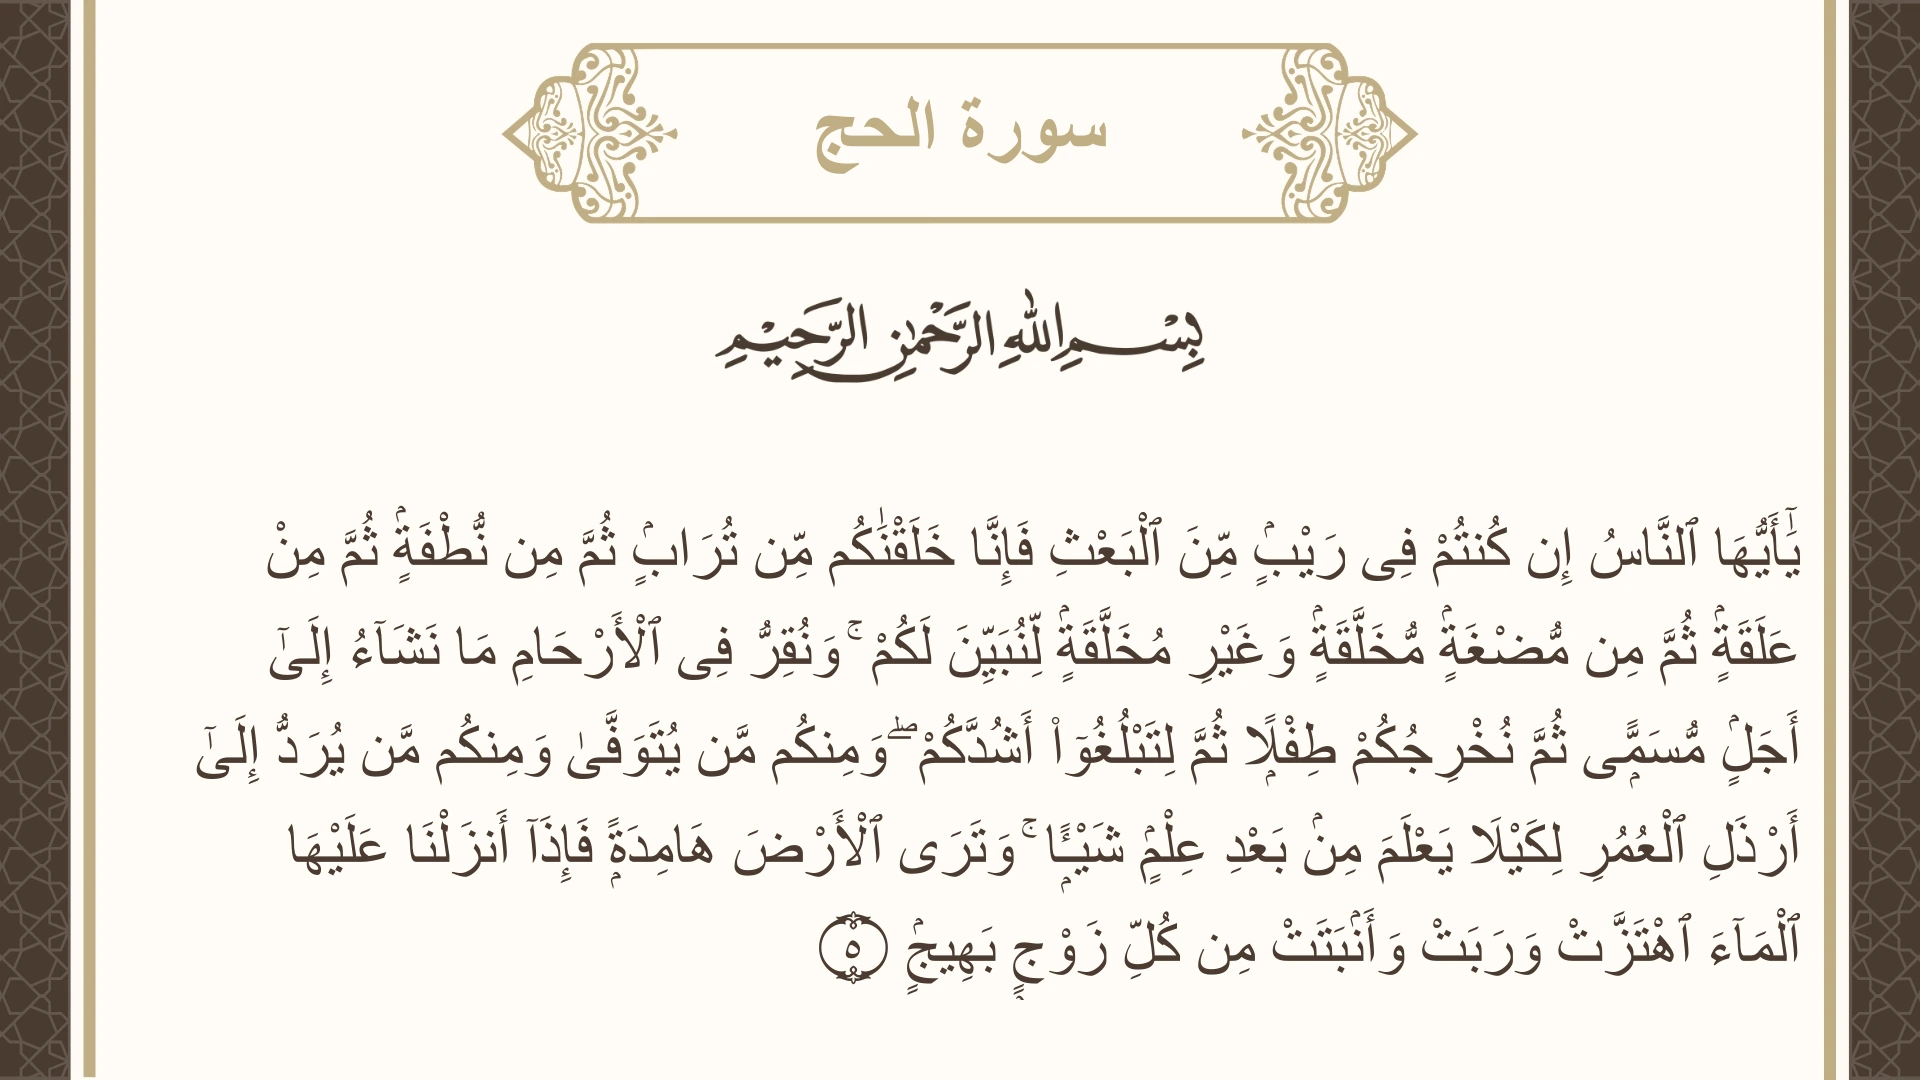 سورة الحج
بِسْمِ اللهِ الرَّحْمٰنِ الرَّحِيْمِ
يَٰٓأَيُّهَا ٱلنَّاسُ إِن كُنتُمْ فِى رَيْبٍۢ مِّنَ ٱلْبَعْثِ فَإِنَّا خَلَقْنَٰكُم مِّن تُرَابٍۢ ثُمَّ مِن نُّطْفَةٍۢ ثُمَّ مِنْ
عَلَقَةٍۢ ثُمَّ مِن مُّضْغَةٍۢ مُّخَلَّقَةٍۢ وَغَيْرِ مُخَلَّقَةٍۢ لِّنُبَيِّنَ لَكُمْ ۚ وَنُقِرُّ فِى ٱلْأَرْحَامِ مَا نَشَآءُ إِلَىٰٓ
أَجَلٍۢ مُّسَمًّۭى ثُمَّ نُخْرِجُكُمْ طِفْلًۭا ثُمَّ لِتَبْلُغُوٓا۟ أَشُدَّكُمْ ۖ وَمِنكُم مَّن يُتَوَفَّىٰ وَمِنكُم مَّن يُرَدُّ إِلَىٰٓ
أَرْذَلِ ٱلْعُمُرِ لِكَيْلَا يَعْلَمَ مِنۢ بَعْدِ عِلْمٍۢ شَيْـًۭٔا ۚ وَتَرَى ٱلْأَرْضَ هَامِدَةًۭ فَإِذَآ أَنزَلْنَا عَلَيْهَا
ٱلْمَآءَ ٱهْتَزَّتْ وَرَبَتْ وَأَنۢبَتَتْ مِن كُلِّ زَوْجٍۭ بَهِيجٍۢ ۝٥